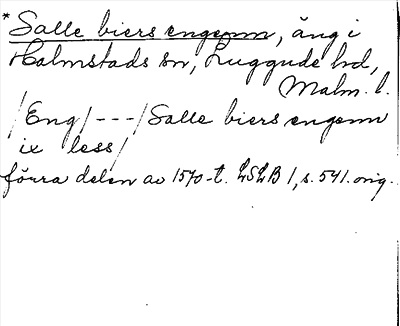 *Salle biers engenn, äng i
Halmstads sn, Luggude hd,
Malm. l.
/Eng/---/Salle biers engenn
ix less/
förra delen av 1570-t. LSLB 1, s. 541. orig.